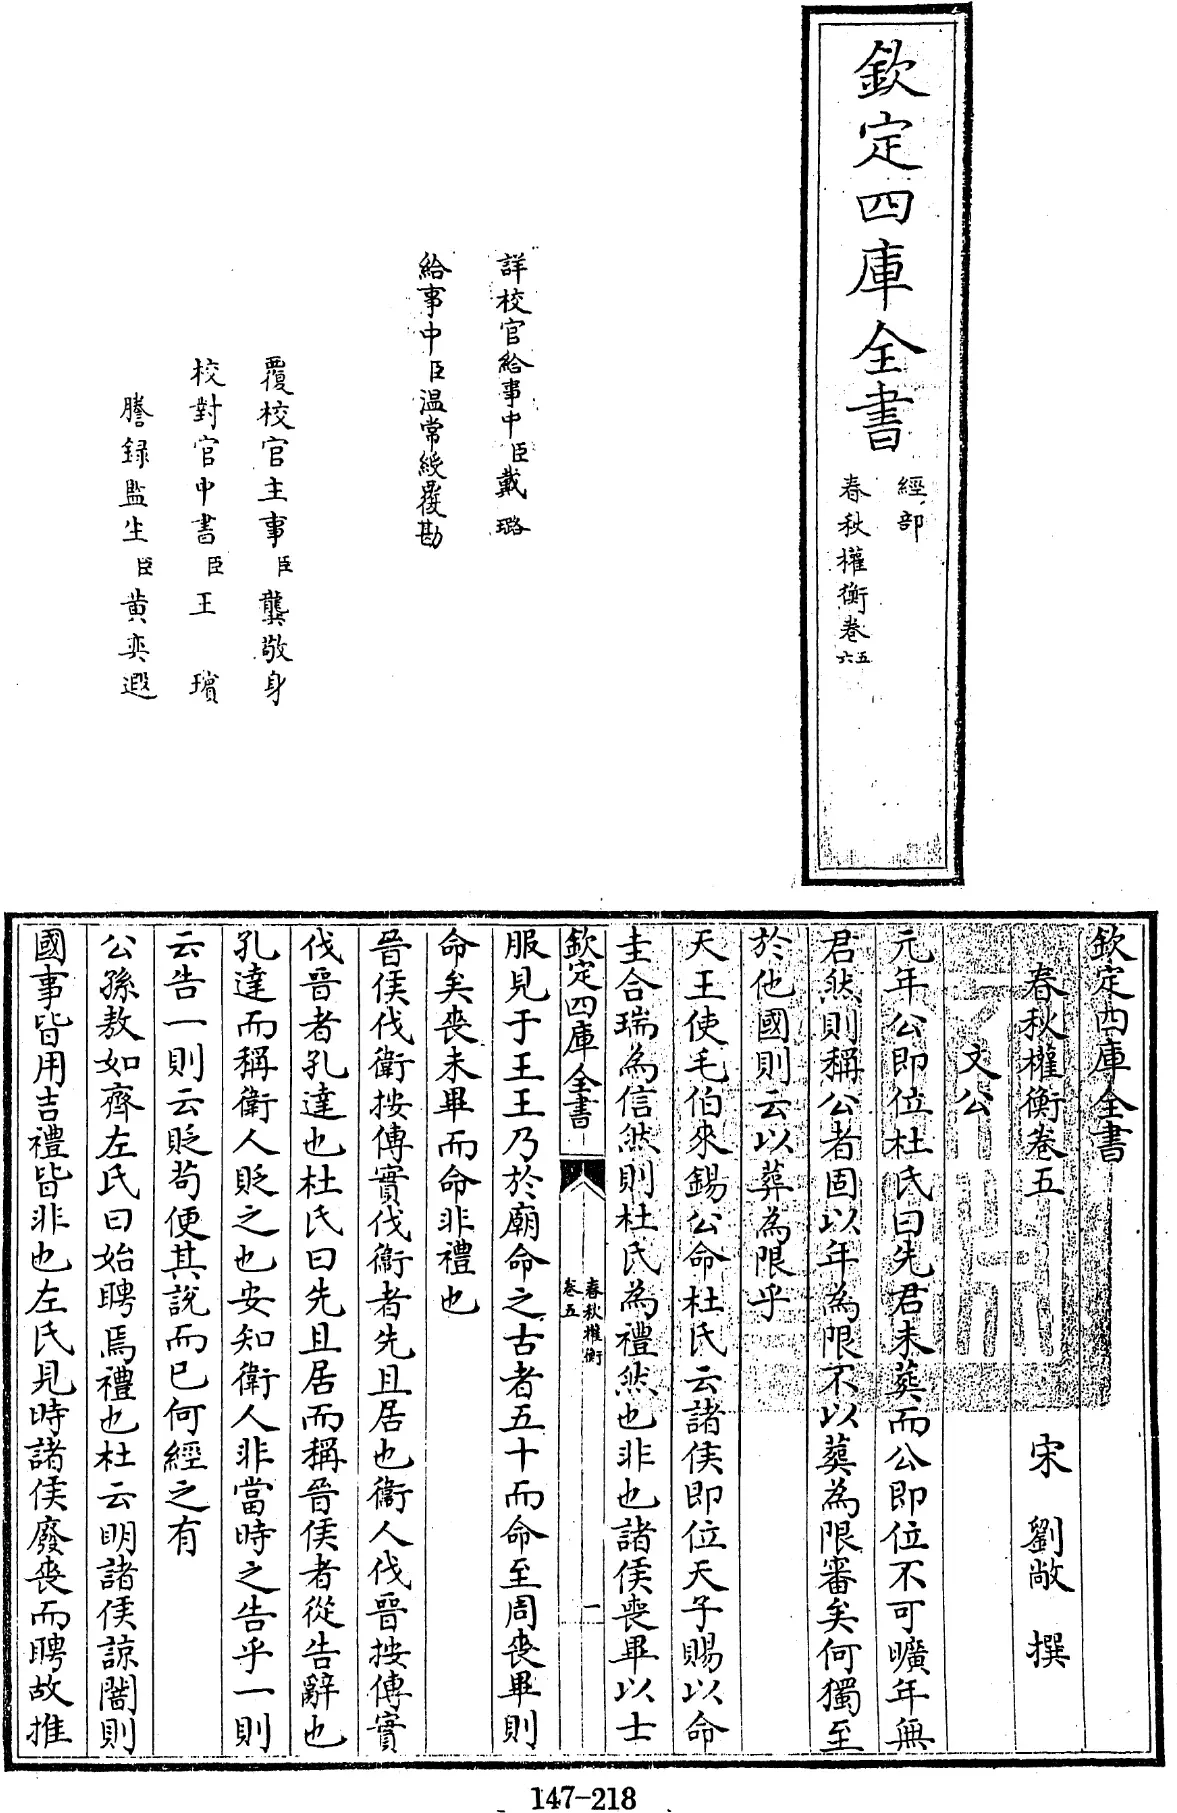 欽定四庫全書
經部
春秋權衡卷五
六
詳校官給事中臣戴璐
給事中臣温常綬覆勘
覆校官主事臣龔敬身
校對官中書臣王瓆
謄録監生臣黄奕遐
欽定四庫全書
春秋權衡卷五
宋 劉敞 撰
文公
元年公即位杜氏曰先君未葬而公即位不可曠年無
君然則稱公者固以年為限不以葬為限審矣何獨至
於他國則云以葬為限乎
天王使毛伯來錫公命杜氏云諸侯即位天子賜以命
圭合瑞為信然則杜氏為禮然也非也諸侯喪畢以士
欽定四庫全書
春秋權衡
卷五
一
服見于王王乃於廟命之古者五十而命至周喪畢則
命矣喪未畢而命非禮也
晉侯伐衛按傳實伐衛者先且居也衛人伐晉按傳實
伐晉者孔達也杜氏曰先且居而稱晉侯者從告辭也
孔達而稱衛人貶之也安知衛人非當時之告乎一則
云告一則云貶苟便其說而已何經之有
公孫敖如齊左氏曰始聘焉禮也杜云明諸侯諒闇則
國事皆用吉禮皆非也左氏見時諸侯廢喪而聘故推
147-218